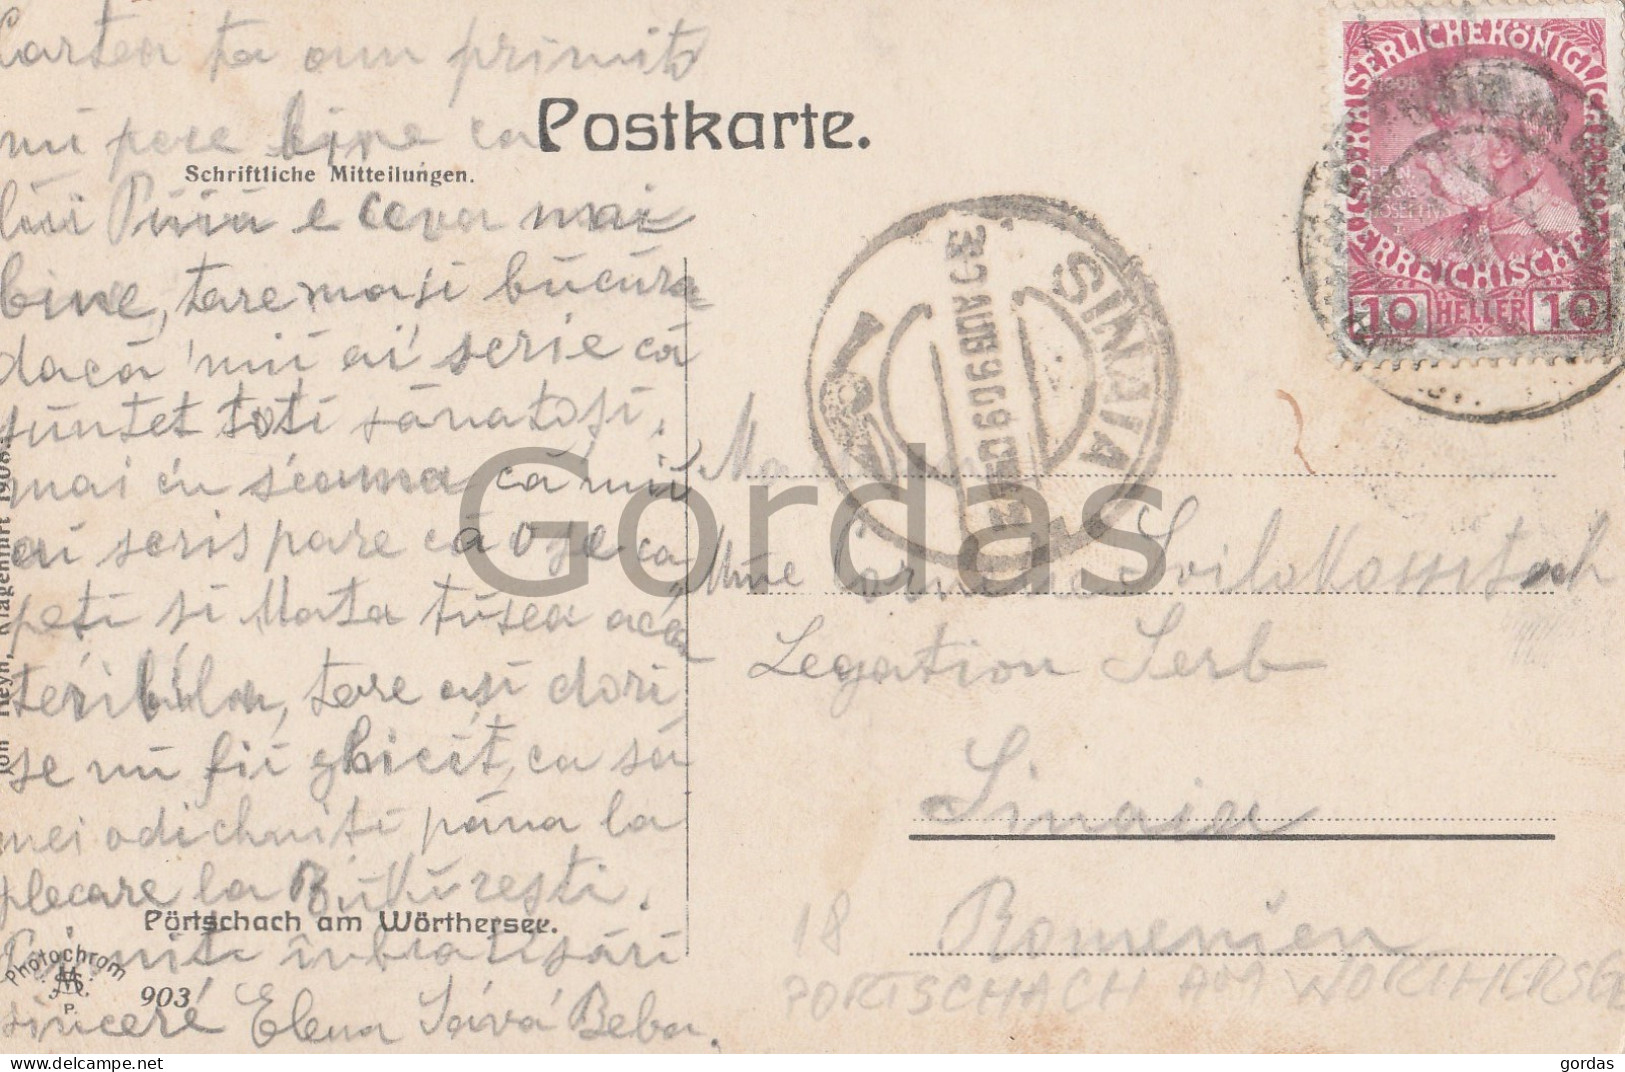 Cartea ta am primit
mi pare bine ca
lui Puiu e ceva mai
bine, tare mași bucura
dacă 'mii ai' scrie că
sŭntet toti sănatoși,
mai cu seama că mii
ai scris pare că ose ca
peti si Mata tusea acea
teribila, tare ași dori
se nu fii ghicit, ca să
mei odichniti păna la
plecare la Bŭkŭrești.
Primiti înbratisări
sinceré Elena Sává Beba.
Postkarte.
Schriftliche Mitteilungen.
Joh Leyn, Klagenfurt 1908.
Pörtschach am Wörthersee.
Photochrom
P.
903
KAISERLICHEKÖNIGLICHE
ÖSTERREICHISCHE
10 HELLER 10
SINAIA
30 AUG 909
Mme
Legation Serb
Sinaia
Romenien
18
PORTSCHACH AM WORTHERSEE
Gordas
gordas